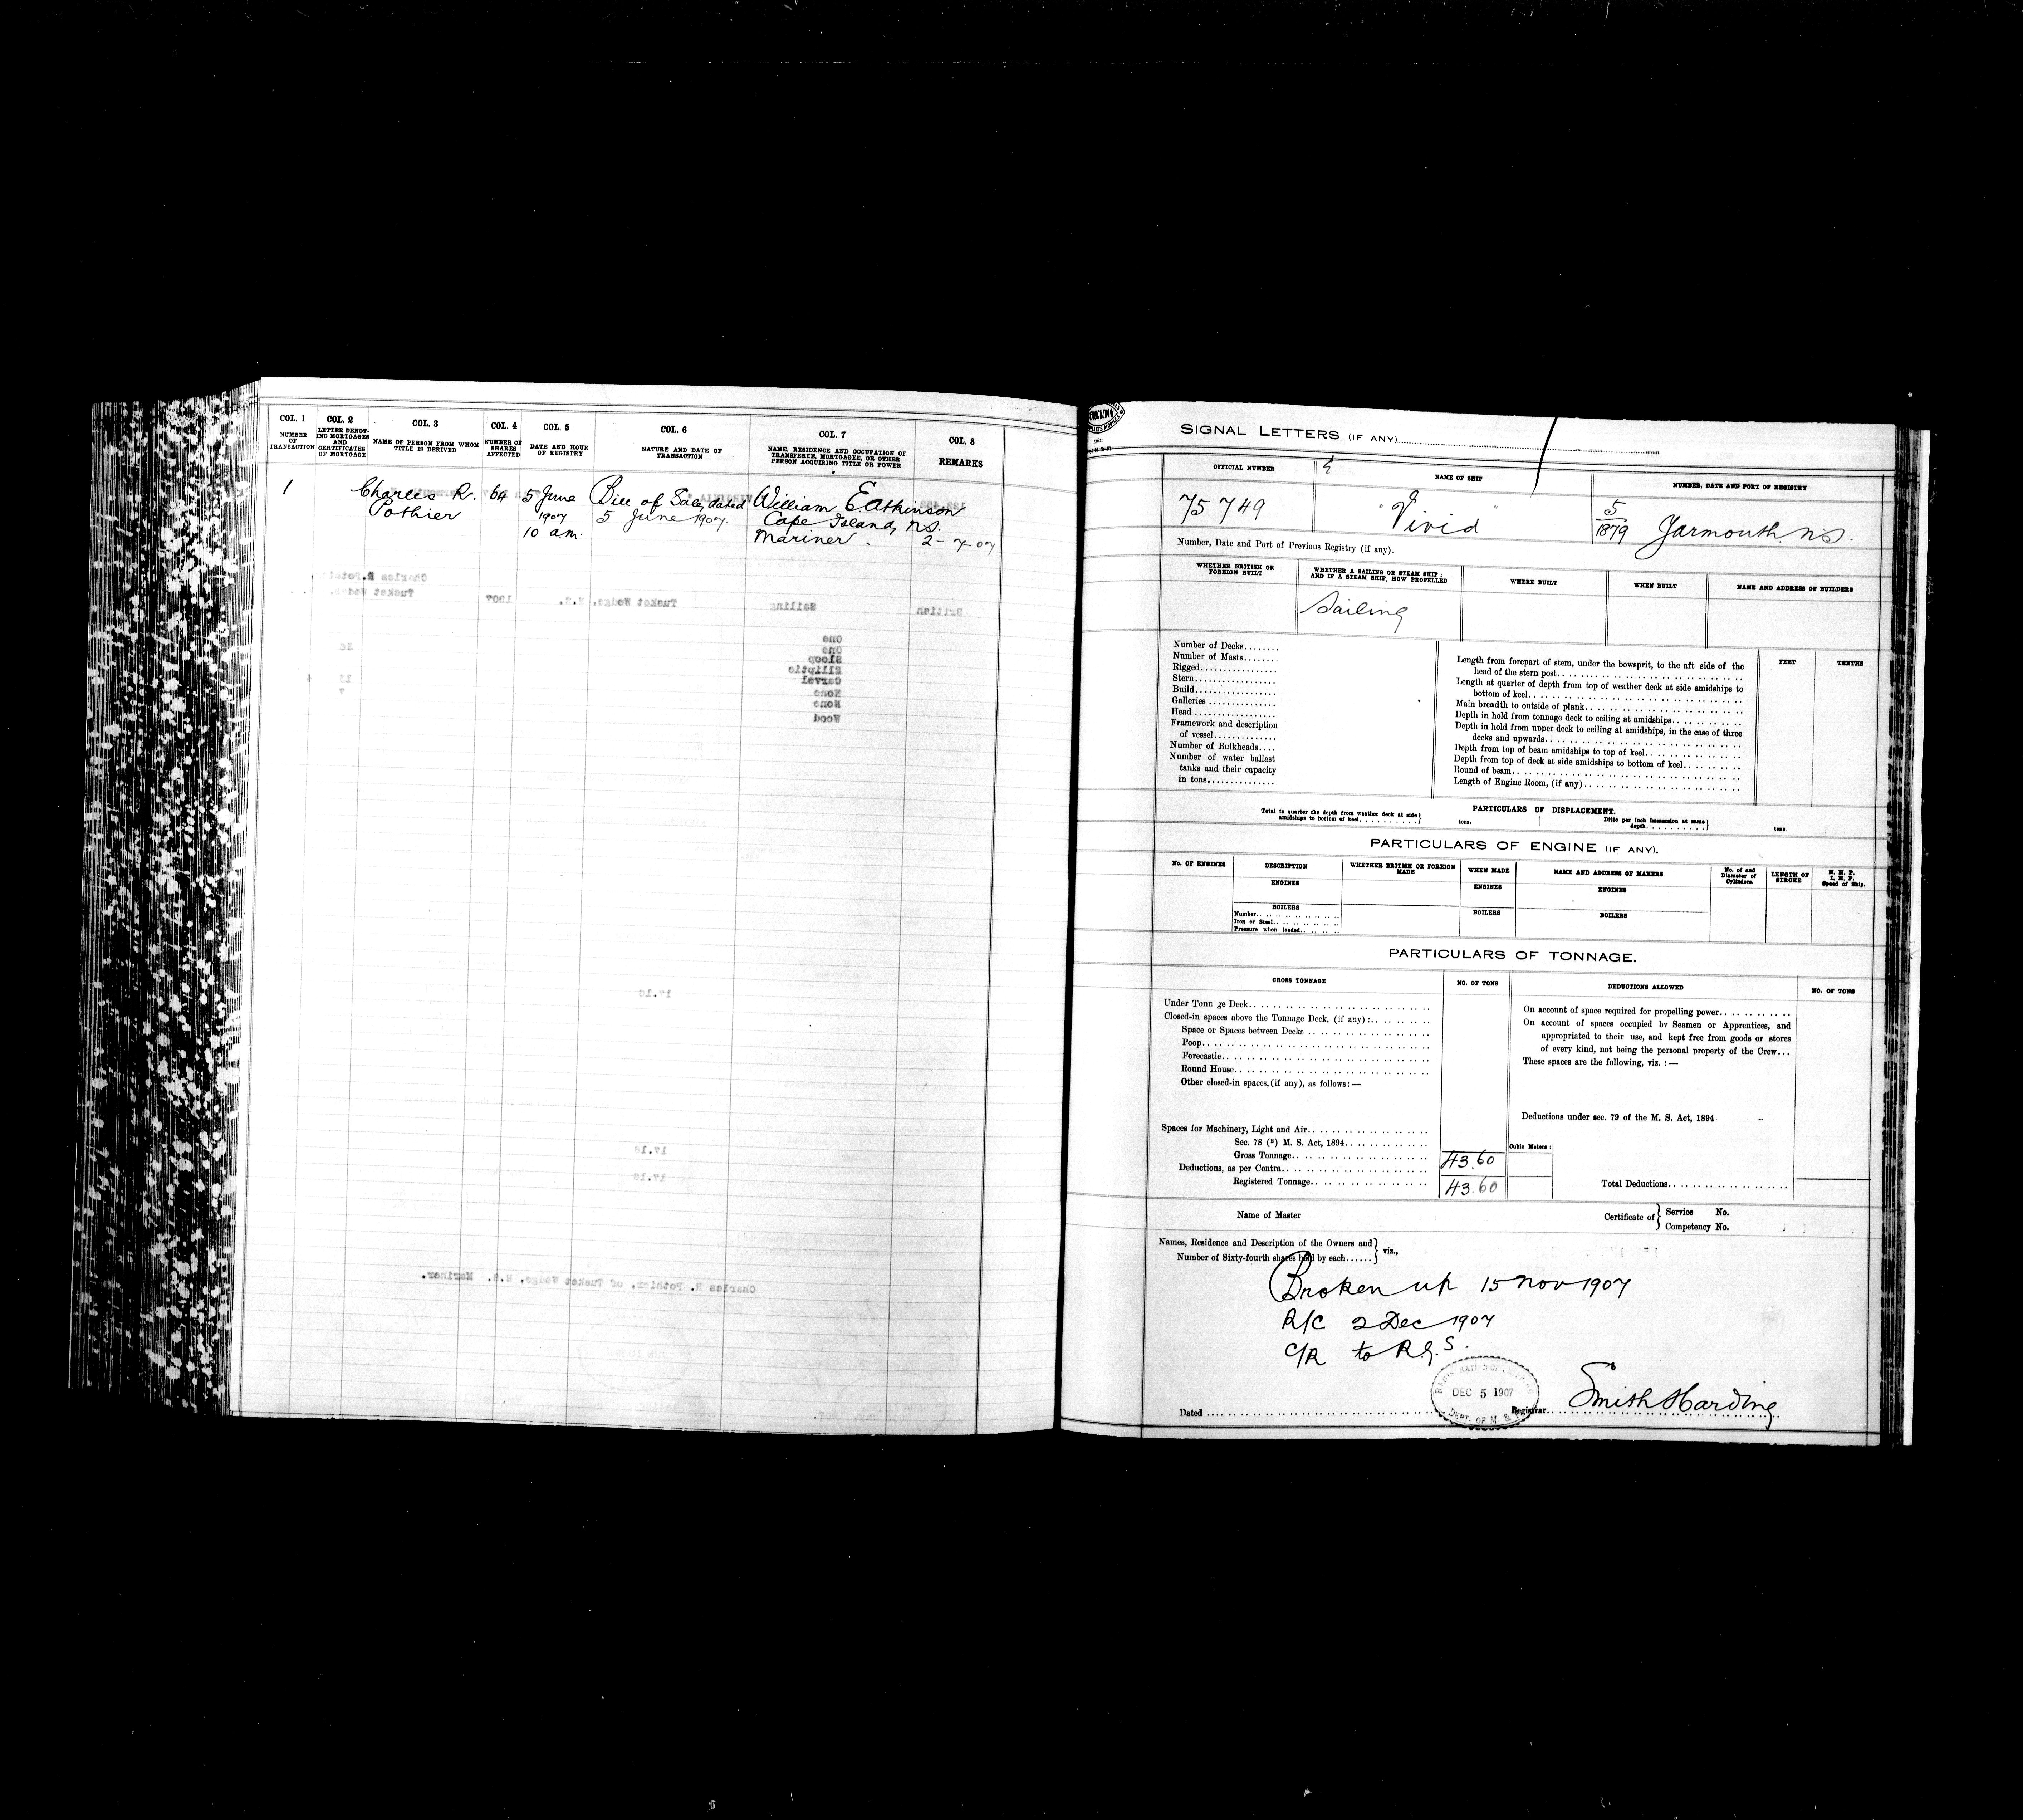 COL. 1 COL. 2 COL. 3 COL. 4 COL. 5 COL. 6 COL. 7 COL. 8
NUMBER OF TRANSACTION
LETTER DENOTING MORTGAGES AND CERTIFICATES OF MORTGAGE
NAME OF PERSON FROM WHOM TITLE IS DERIVED
NUMBER OF SHARES AFFECTED
DATE AND HOUR OF REGISTRY
NATURE AND DATE OF TRANSACTION
NAME, RESIDENCE AND OCCUPATION OF TRANSFEREE, MORTGAGEE, OR OTHER PERSON ACQUIRING TITLE OR POWER
REMARKS
1 Charles R. 64 5 June Bill of Sale, dated William Eatkinson
Pothier 1907 5 June 1907. Cape Island, N.S.
10 a.m. Mariner. 2-7-07
Charles R. Pothier
Tusket Wedge.
British Sailing Tusket Wedge, N.S. 1907
One
One
Sloop
Elliptic
Carvel
None
None
Wood
17.16
17.16
17.16
Charles R. Pothier, of Tusket Wedge, N.S. Mariner.
SIGNAL LETTERS (IF ANY)
OFFICIAL NUMBER NAME OF SHIP NUMBER, DATE AND PORT OF REGISTRY
75 749 "Vivid" 5/1879 Yarmouth N.S.
Number, Date and Port of Previous Registry (if any).
WHETHER BRITISH OR FOREIGN BUILT
WHETHER A SAILING OR STEAM SHIP; AND IF A STEAM SHIP, HOW PROPELLED
WHERE BUILT WHEN BUILT NAME AND ADDRESS OF BUILDERS
Sailing
Number of Decks........
Number of Masts........
Rigged..................
Stern...................
Build...................
Galleries...............
Head....................
Framework and description
of vessel..............
Number of Bulkheads....
Number of water ballast
tanks and their capacity
in tons................
FEET TENTHS
Length from forepart of stem, under the bowsprit, to the aft side of the
head of the stern post..
Length at quarter of depth from top of weather deck at side amidships to
bottom of keel..
Main breadth to outside of plank..
Depth in hold from tonnage deck to ceiling at amidships..
Depth in hold from upper deck to ceiling at amidships, in the case of three
decks and upwards..
Depth from top of beam amidships to top of keel..
Depth from top of deck at side amidships to bottom of keel..
Round of beam..
Length of Engine Room, (if any)..
PARTICULARS OF DISPLACEMENT.
Total to quarter the depth from weather deck at side amidships to bottom of keel.......... tons.
Ditto per inch immersion at same depth.......... tons.
PARTICULARS OF ENGINE (IF ANY).
No. OF ENGINES DESCRIPTION WHETHER BRITISH OR FOREIGN MADE WHEN MADE NAME AND ADDRESS OF MAKERS No. of and Diameter of Cylinders. LENGTH OF STROKE N. H. P. I. H. P. Speed of Ship.
ENGINES ENGINES ENGINES
BOILERS BOILERS BOILERS
Number..
Iron or Steel..
Pressure when loaded..
PARTICULARS OF TONNAGE.
GROSS TONNAGE NO. OF TONS DEDUCTIONS ALLOWED NO. OF TONS
Under Tonnage Deck..
Closed-in spaces above the Tonnage Deck, (if any):..
Space or Spaces between Decks..
Poop..
Forecastle..
Round House..
Other closed-in spaces, (if any), as follows:—
On account of space required for propelling power..
On account of spaces occupied by Seamen or Apprentices, and
appropriated to their use, and kept free from goods or stores
of every kind, not being the personal property of the Crew...
These spaces are the following, viz.:—
Deductions under sec. 79 of the M. S. Act, 1894
Spaces for Machinery, Light and Air..
Sec. 78 (2) M. S. Act, 1894.. Cubic Meters:
Gross Tonnage.. 43.60
Deductions, as per Contra..
Registered Tonnage.. 43.60 Total Deductions..
Name of Master Certificate of Service No.
Competency No.
Names, Residence and Description of the Owners and
Number of Sixty-fourth shares held by each...... viz.,
Broken up 15 Nov 1907
R/C 2 Dec 1907
C/R to R.G.S.
DEC 5 1907
DEPT. OF M. &
Dated Registrar Smith Harding